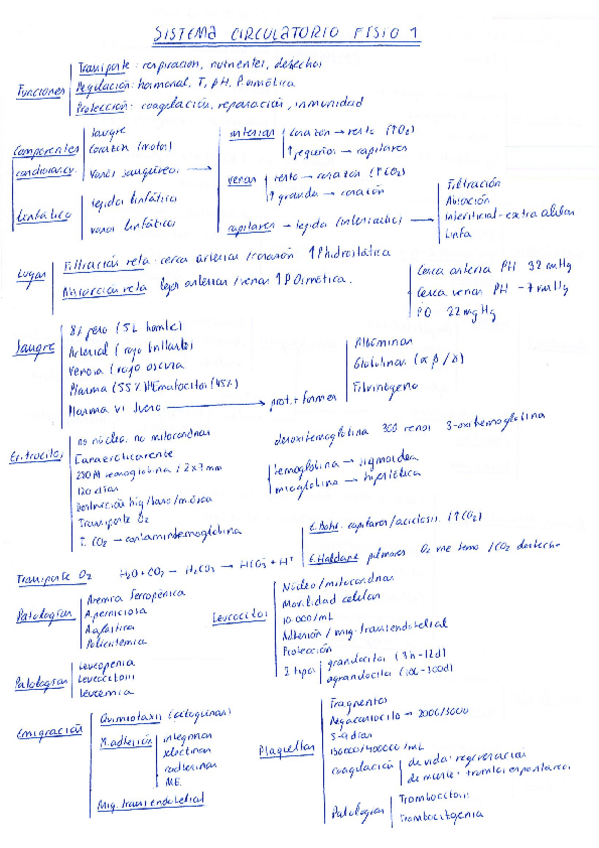 SISTEMA CIRCULATORIO FISIO 1
Funciones
Transporte: respiracion, nutrientes, desechos
Regulación: hormonal, T, pH, P osmótica
Protección: coagulación, reparación, inmunidad
Componentes
cardiovasc.
sangre
Corazón (motor)
vasos sanguíneos →
arterias
corazon → resto (↑O2)
↑ pequeños → capilares
venas
resto → corazón (↑CO2)
↑ grande → corazón
capilares → tejido (intercambio) →
Filtración
Absorción
Intersticial - extracelular
Linfa
Linfático
tejido linfático
vasos linfáticos
Lugar
Filtración neta: cerca arterias /corazón ↑Phidrostática
Absorción neta lejos arterias /venas ↑P Osmótica.
Cerca arteria PH 32 mmHg
Cerca venas PH -7 mmHg
PO 22 mmHg
Sangre
8% peso (5L hombre)
Arterial (rojo brillante)
Venosa (rojo oscura
Plasma (55%) Hematocitos (45%)
Plasma vs Suero → prot. + formes
Albúminas
Globulinas (α β / γ)
Fibrinógeno
Eritrocitos
no núcleo, no mitocondrias
hemoglobina /
120 días
Destrucción híg/bazo/médula
Transporte O2
T. CO2 → carbaminohemoglobina
desoxihemoglobina 300 renos 3-oxihemoglobina
hemoglobina → sigmoidea
mioglobina → hiperbólica
E. Bohr: capilares/acidosis (↑CO2)
E. Haldane: pulmones O2 une hemo / CO2
Transporte O2 H2O + CO2 → H2CO3 → HCO3- + H+
Patologías
Anemia ferropénica
A. perniciosa
A. aplástica
Policitemia
Leucocitos
Núcleo/mitocondrias
Movilidad celular
10.000/mL
Adhesión / mig. transendotelial
Protección
2 tipos
granulocitos
agranulocitos (100-300d)
Patologías
leucopenia
leucocitosis
leucemia
Emigración
Quimiotaxis (citoquinas)
M. adhesión
integrinas
selectinas
cadherinas
M.E.
Mig. transendotelial
Plaquetas
Fragmentos
Megacariocito → 2000/3000
5-9 días
150000/400000 /mL
coagulación
de vida: regeneración
de muerte: trombos espontáneos
Patologías
Trombocitosis
Trombocitopenia